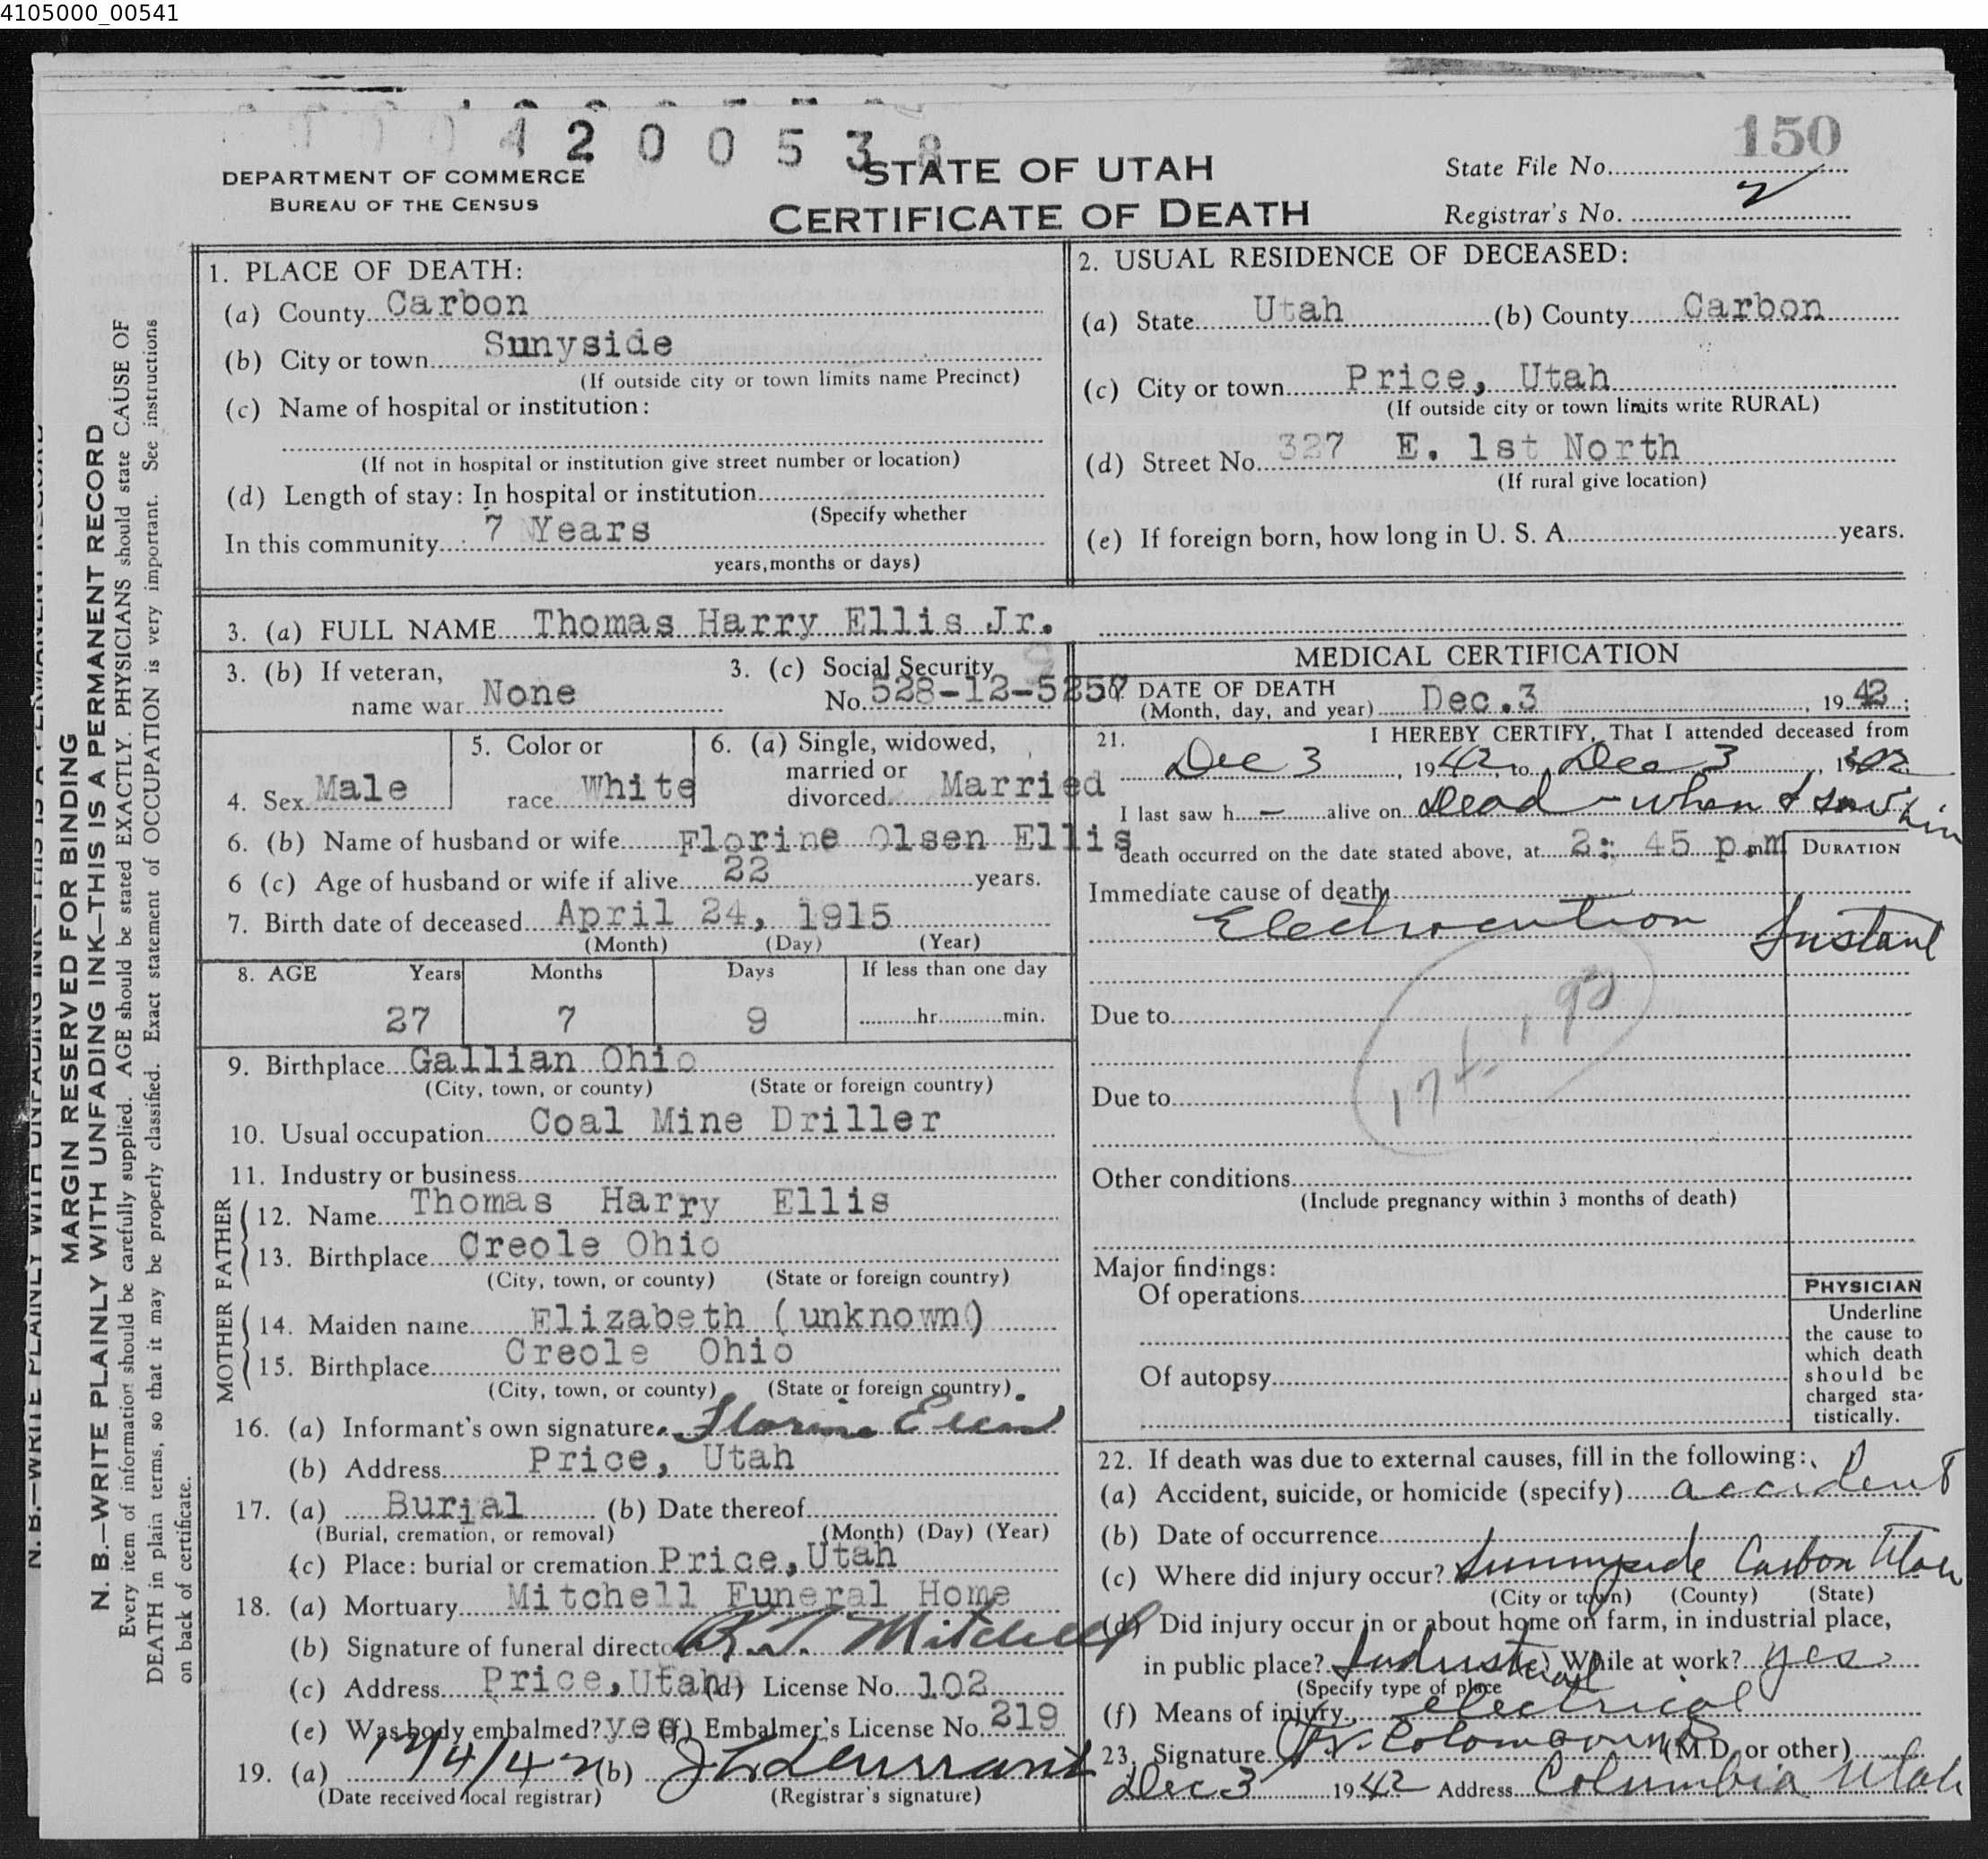 4105000_00541
4 2 0 0 5 3 8
150
DEPARTMENT OF COMMERCE
BUREAU OF THE CENSUS
STATE OF UTAH
CERTIFICATE OF DEATH
State File No.
Registrar's No. 2
MARGIN RESERVED FOR BINDING
N. B.—WRITE PLAINLY WITH UNFADING INK—THIS IS A PERMANENT RECORD
Every item of information should be carefully supplied. AGE should be stated EXACTLY. PHYSICIANS should state CAUSE OF
DEATH in plain terms, so that it may be properly classified. Exact statement of OCCUPATION is very important. See instructions
on back of certificate.
1. PLACE OF DEATH:
(a) County Carbon
(b) City or town Sunyside
(If outside city or town limits name Precinct)
(c) Name of hospital or institution:
(If not in hospital or institution give street number or location)
(d) Length of stay: In hospital or institution
(Specify whether
In this community 7 Years
years, months or days)
2. USUAL RESIDENCE OF DECEASED:
(a) State Utah (b) County Carbon
(c) City or town Price, Utah
(If outside city or town limits write RURAL)
(d) Street No. 327 E. 1st North
(If rural give location)
(e) If foreign born, how long in U. S. A. years.
3. (a) FULL NAME Thomas Harry Ellis Jr.
3. (b) If veteran, name war None
3. (c) Social Security No. 528-12-5257
4. Sex Male
5. Color or race White
6. (a) Single, widowed, married or divorced Married
6. (b) Name of husband or wife Florine Olsen Ellis
6 (c) Age of husband or wife if alive 22 years.
7. Birth date of deceased April 24, 1915
(Month) (Day) (Year)
8. AGE Years Months Days If less than one day
27 7 9 hr. min.
9. Birthplace Gallian Ohio
(City, town, or county) (State or foreign country)
10. Usual occupation Coal Mine Driller
11. Industry or business
FATHER
12. Name Thomas Harry Ellis
13. Birthplace Creole Ohio
(City, town, or county) (State or foreign country)
MOTHER
14. Maiden name Elizabeth (unknown)
15. Birthplace Creole Ohio
(City, town, or county) (State or foreign country)
16. (a) Informant's own signature Florine Ellis
(b) Address Price, Utah
17. (a) Burial (b) Date thereof
(Burial, cremation, or removal) (Month) (Day) (Year)
(c) Place: burial or cremation Price, Utah
18. (a) Mortuary Mitchell Funeral Home
(b) Signature of funeral director R. T. Mitchell
(c) Address Price, Utah (d) License No. 102
(e) Was body embalmed? yes (f) Embalmer's License No. 219
19. (a) 12/4/42 (b)
(Date received local registrar) (Registrar's signature)
MEDICAL CERTIFICATION
DATE OF DEATH
(Month, day, and year) Dec. 3, 1942;
21. I HEREBY CERTIFY, That I attended deceased from
Dec 3, 1942, to Dec 3, 1942
I last saw h — alive on Dead - when I saw him
death occurred on the date stated above, at 2: 45 p.m
DURATION
Immediate cause of death
Electrocution Instant
Due to
Due to
Other conditions
(Include pregnancy within 3 months of death)
Major findings:
Of operations
Of autopsy
PHYSICIAN
Underline
the cause to
which death
should be
charged sta-
tistically.
22. If death was due to external causes, fill in the following:
(a) Accident, suicide, or homicide (specify) accident
(b) Date of occurrence
(c) Where did injury occur? Sunnyside Carbon Utah
(City or town) (County) (State)
(d) Did injury occur in or about home on farm, in industrial place,
in public place? Industrial While at work? yes
(Specify type of place
(f) Means of injury electrical
23. Signature (M.D. or other)
Dec 3 1942 Address Columbia Utah